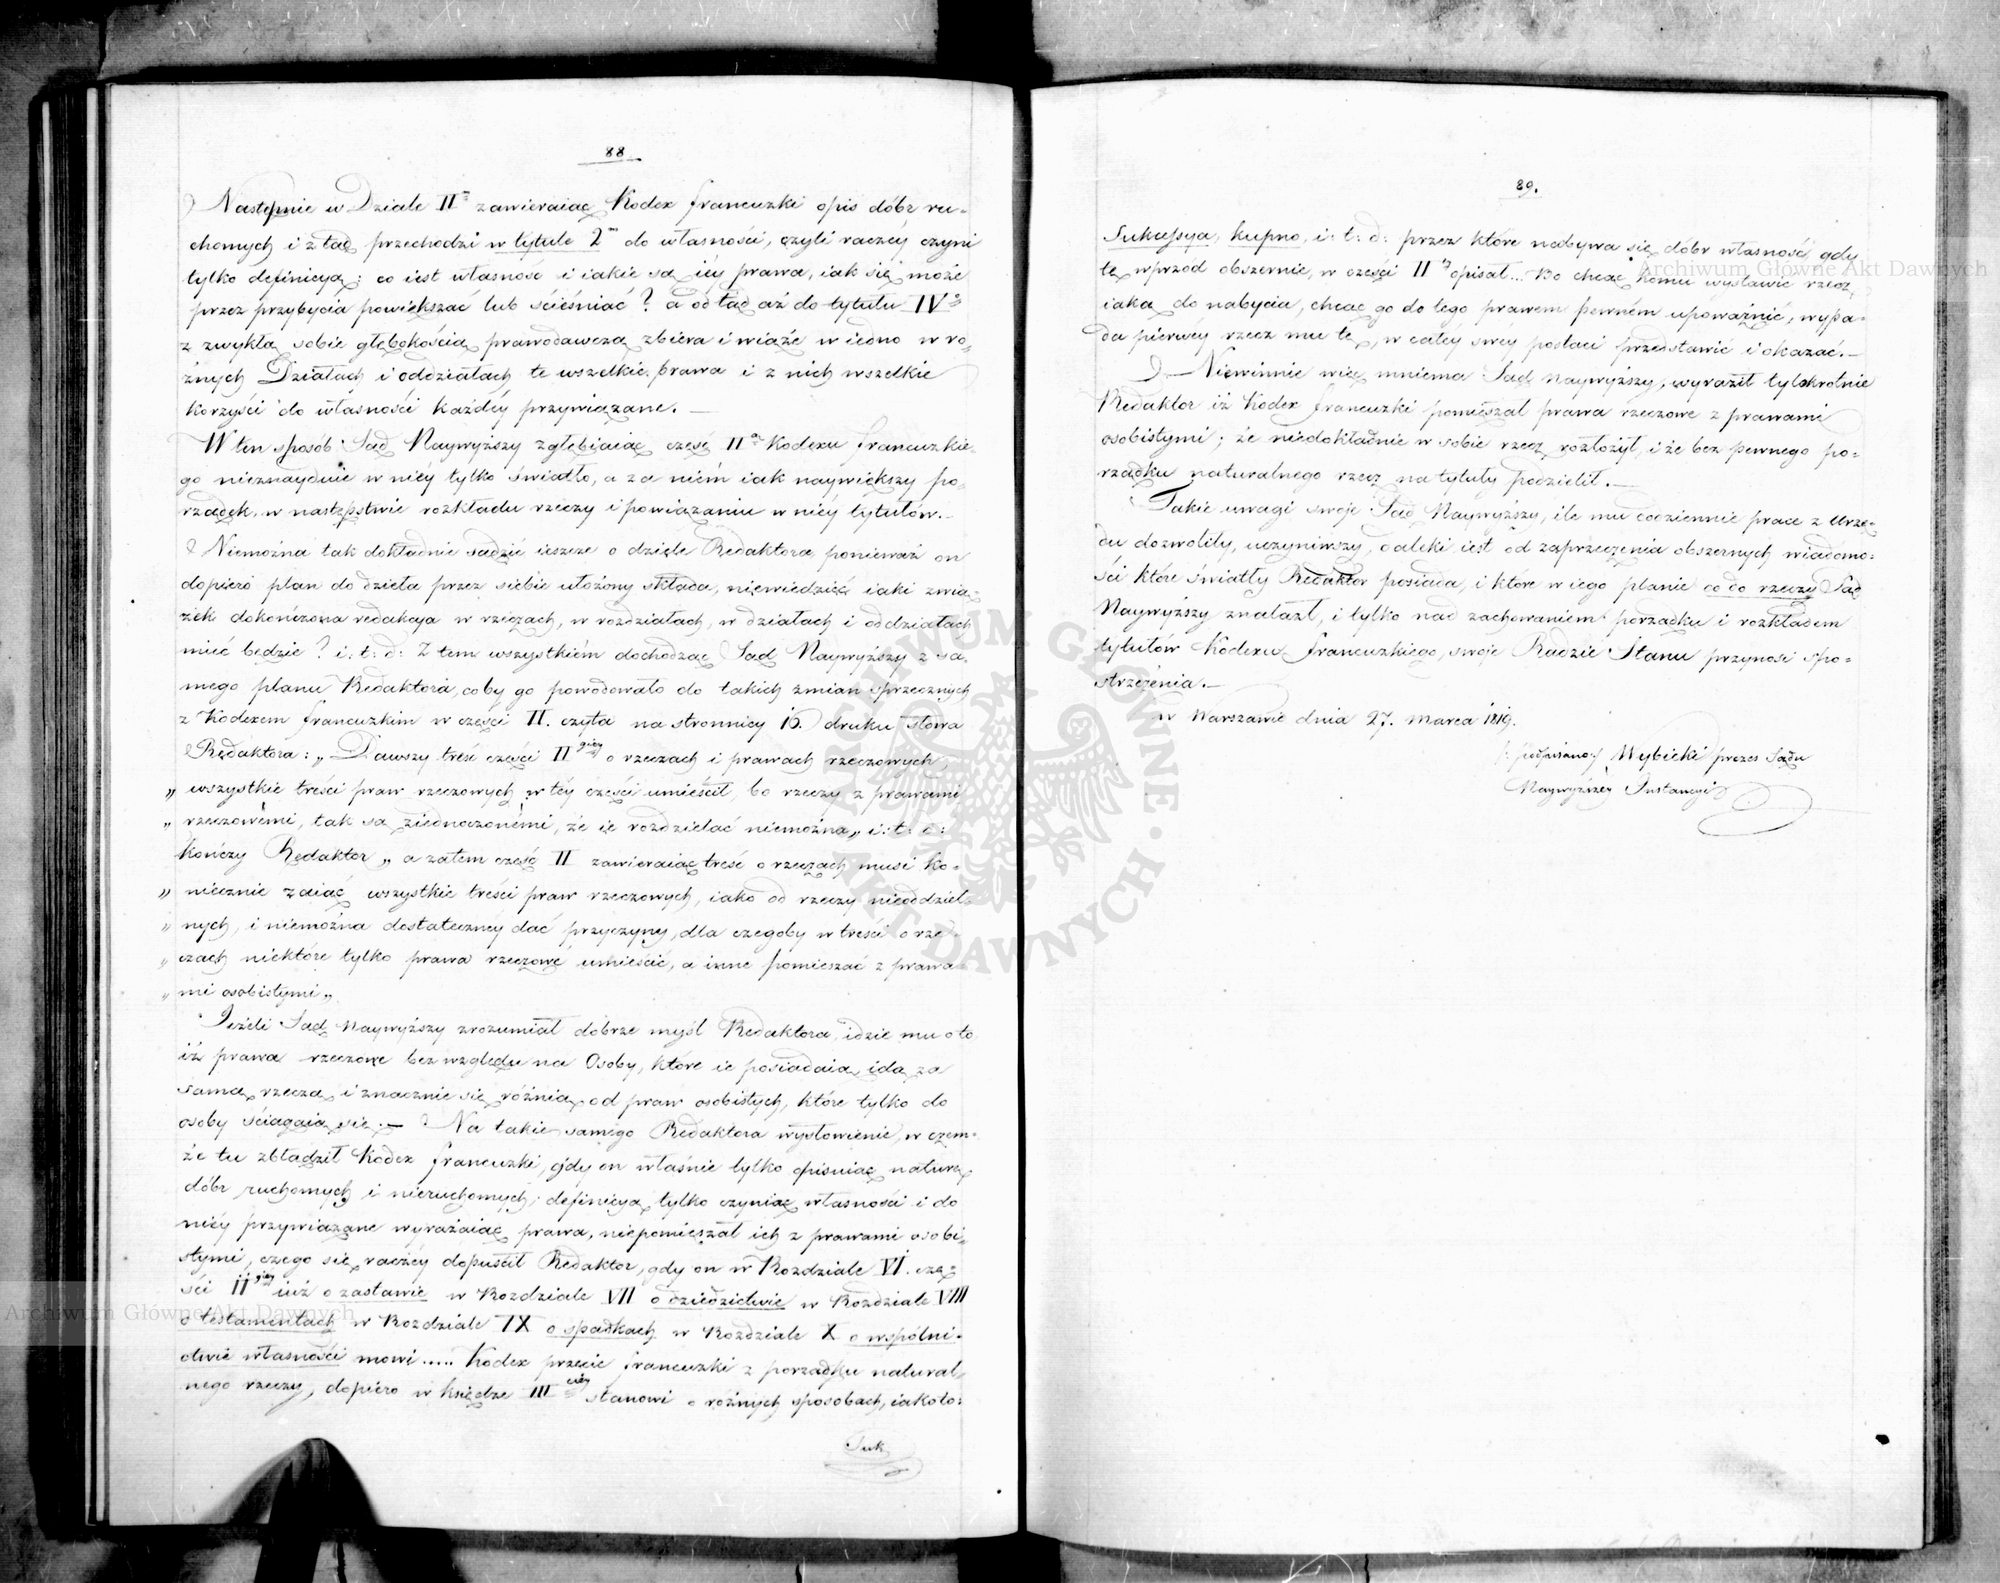 88
Następnie w Dziale II<sup>m</sup> zawieraiąc Kodex francuzki opis dóbr ru-
chomych i ztąd przechodzi w tytule 2<sup>m</sup> do własności, czyli raczéy czyni
tylko definicyą; co iest własność i iakie są iéy prawa, iak się może
przez przybycia powiększać lub ścieśniać? a odtąd aż do tytułu IV<sup>o</sup>
z zwykłą sobie głębokością prawodawczą zbiera i wiąże w iedno w ro-
żnych Działach i oddziałach te wszelkie prawa i z nich wszelkie
korzyści do własności każdéy przywiązane. —
W ten sposób Sąd Naywyższy zgłębiaiąc część II<sup>a</sup> Kodexu francuzkie-
go nieznayduie w niéy tylko światło, a za niém iak naywiększy po-
rządek, w następstwie rozkładu rzeczy i powiązaniu w niéy tytułów. —
Niemożna tak dokładnie sądzić ieszcze o dziele Redaktora ponieważ on
dopiero plan do dzieła przez siebie ułożony składa, niewiedzieć iaki zwią-
zek dokończona redakcya w rzeczach, w rozdziałach, w działach i oddziałach
mieć będzie? i: t: d: Z tem wszystkiém dochodząc Sąd Naywyższy z sa-
mego planu Redaktora, coby go powodowało do takich zmian sprzecznych
z Kodexem francuzkim w części II. czyta na stronnicy 16. druku słowa
Redaktora: „Dawszy treść części II<sup>giey</sup> o rzeczach i prawach rzeczowych,
„ wszystkie treści praw rzeczowych w téy części umieścił, bo rzeczy z prawami
„ rzeczowémi, tak są ziednoczonémi, że ie rozdzielać niemożna„ i: t: d:
kończy Redaktor „a zatem część II zawieraiąc treść o rzeczach musi ko-
„ niecznie zaiąć wszystkie treści praw rzeczowych, iako od rzeczy nieoddziel-
„ nych, i niemożna dostateczney dać przyczyny, dla czegoby w treści o rze-
„ czach niektóre tylko prawa rzeczowe umieścić, a inne pomieszać z prawa-
„ mi osobistymi„
Jeżeli Sąd Naywyższy zrozumiał dobrze myśl Redaktora, idzie mu o to
iż prawa rzeczowe bez względu na Osoby, które ie posiadaią, idą za
samą rzeczą, i znacznie się różnią od praw osobistych, które tylko do
osoby ściągaią się. — Na takie samego Redaktora wysłowienie, w czem-
że tu zbłądził Kodex francuzki, gdy on właśnie tylko opisuiąc naturę
dóbr ruchomych i nieruchomych; definicyą tylko czyniąc własności i do
niéy przywiązane wyrażaiąc prawa, niepomięszał ich z prawami osobi-
stymi, czego się raczéy dopuścił Redaktor, gdy on w Rozdziale VI. czę-
ści II<sup>giey</sup> iuż o zastawie w Rozdziale VII o dziedzictwie w Rozdziale VIII
o testamentach w Rozdziale IX o spadkach w Rozdziale X o wspólni-
ctwie własności mowi..... Kodex przecie francuzki z porządku natural-
nego rzeczy, dopiero w księdze III<sup>ciey</sup> stanowi o różnych sposobach, iako to:
Suk
89.
Sukcessya, kupno, i: t: d: przez które nabywa się dóbr własność gdy
tę wprzód obszernie, w części II<sup>y</sup> opisał... Bo chcąc komu wystawić rzecz
iaką do nabycia, chcąc go do tego prawem pewném upoważnić, wypa-
da pierwey rzecz mu tę, w całéy swey postaci przedstawić i okazać. —
— Niewinnie więc mniema Sąd Naywyższy, wyraził tylokrotnie
Redaktor iż Kodex francuzki pomięszał prawa rzeczowe z prawami
osobistymi; że niedokładnie w sobie rzecz rozłożył, i że bez pewnego po-
rządku naturalnego rzecz na tytuły podzielił. —
Takie uwagi swoje Sąd Naywyższy, ile mu codziennie prace z Urzę-
du dozwoliły, uczyniwszy, daleki iest od zaprzeczenia obszernych wiadomo-
ści które światły Redaktor posiada, i które w iego planie co do rzeczy Sąd
Naywyższy znalazł, i tylko nad zachowaniem porządku i rozkładem
tytułów Kodexu francuzkiego, swoje Radzie Stanu przynosi spo-
strzeżenia. —
w Warszawie dnia 27. Marca 1819.
/:podpisano:/ Wybicki prezes Sądu
Naywyższéy Instancyi
Archiwum Główne Akt Dawnych
Archiwum Główne Akt Dawnych
ARCHIWUM GŁÓWNE AKT DAWNYCH